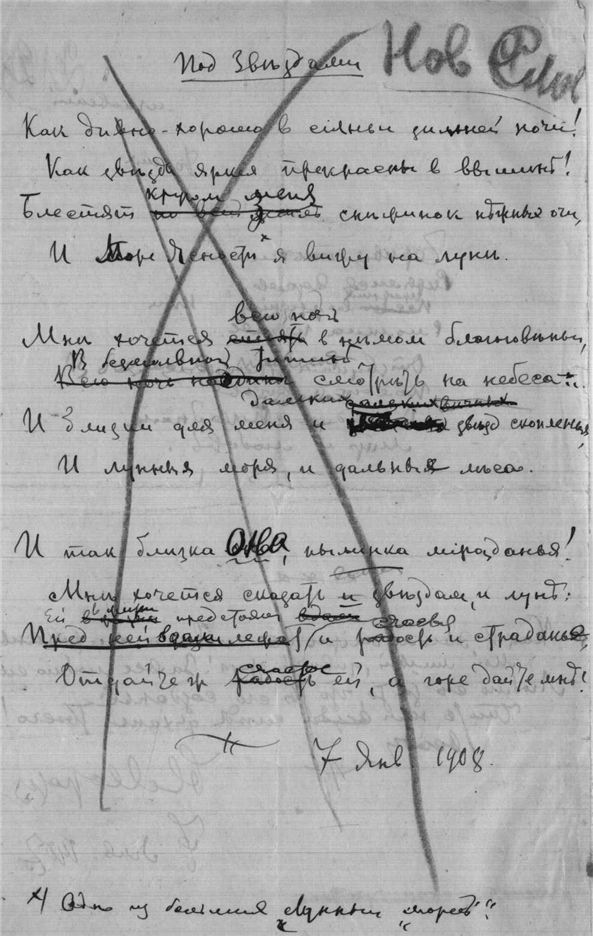 Подъ Звѣздами
Нов Слов
Как дивно-хорошо в сіяньи зимней ночи!
Как звѣзды яркія прекрасны в вышинѣ!
кругом меня
Блестят по всей землѣ снѣжинок нѣжных очи,
И Море Ясности* я вижу на лунѣ.
всю ночь
Мнѣ хочется стоять в нѣмом благоговѣньи,
В безмолвной тишинѣ
смотрѣть на небеса.
далеких
И близки для меня и звѣзд скопленья,
И лунныя моря, и дальныя лѣса.
И так близка Она, пылинка мірозданья!
Мнѣ хочется сказать и звѣздам, и лунѣ:
Ей в жизни предстоят счастье
Пред ней и радость и страданье,
счастье
Отдайте радость ей, а горе дайте мнѣ!
7 Янв 1908.
*) Одно из большия „Лунных „морей".